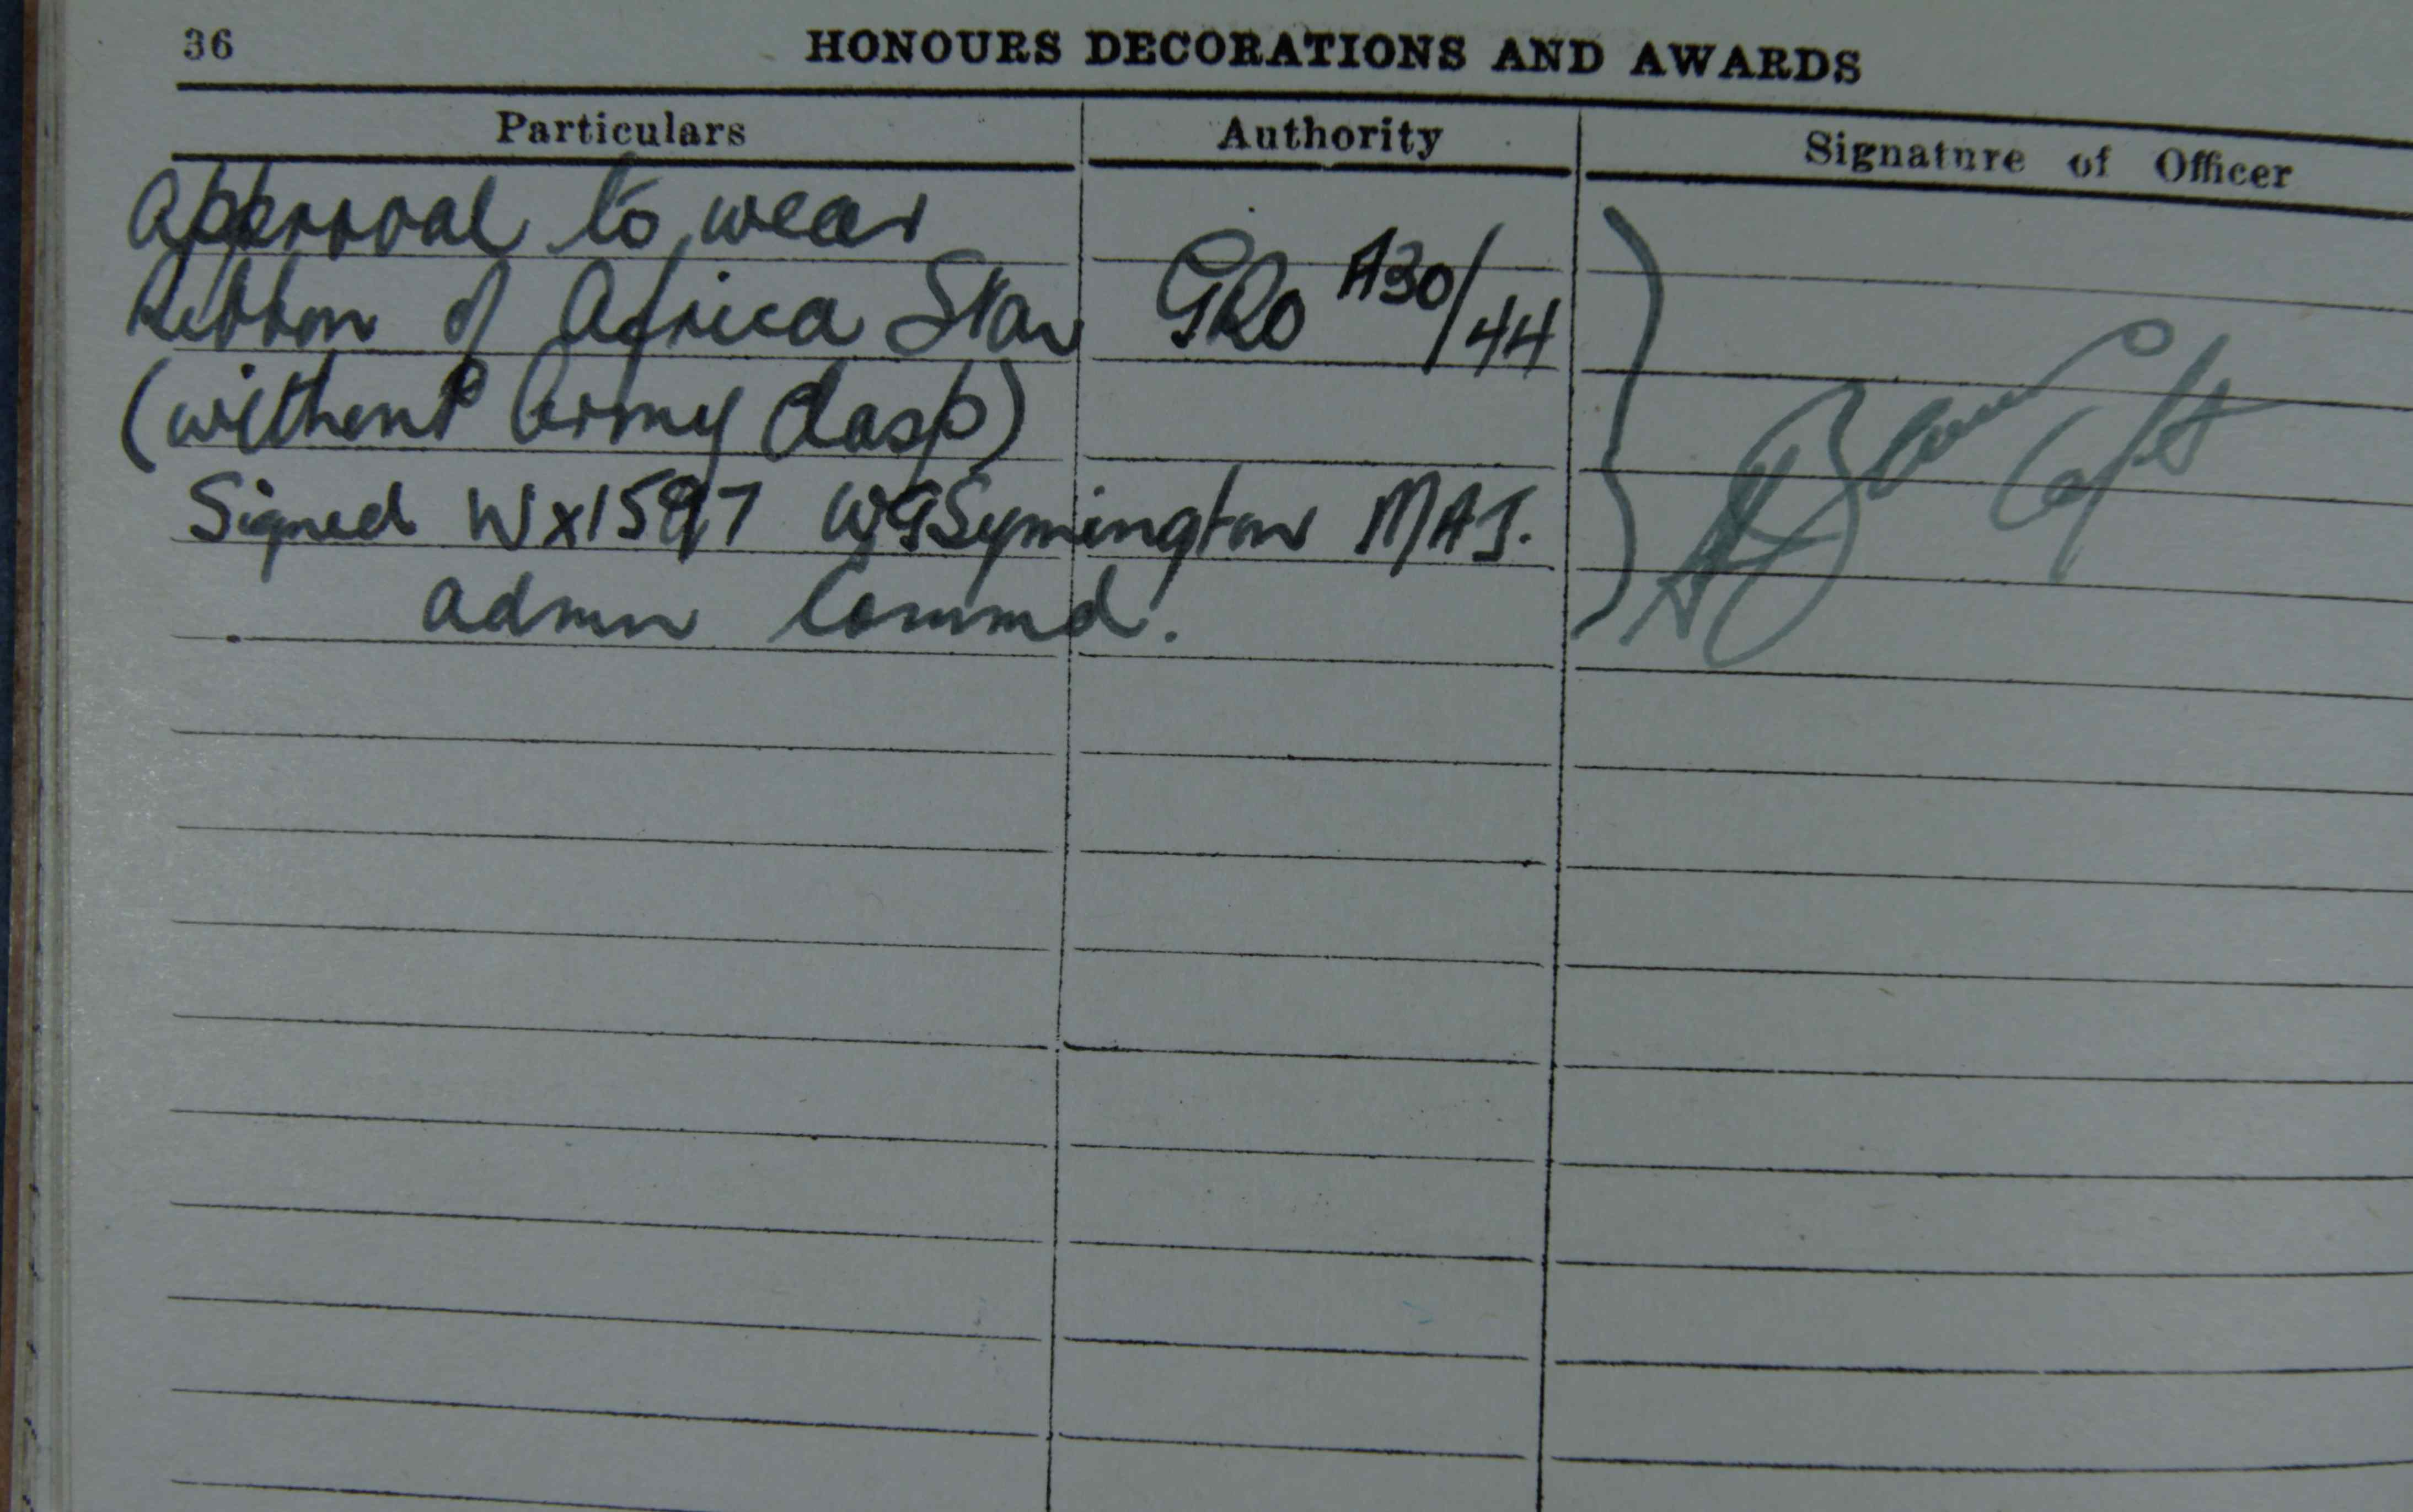 36
HONOURS DECORATIONS AND AWARDS
Particulars Authority Signature of Officer
Approval to wear
Ribbon of Africa Star GRO A30/44
(without Army Clasp)
Signed WX1597 WGSymington MAJ.
Admin Commd.
Capt